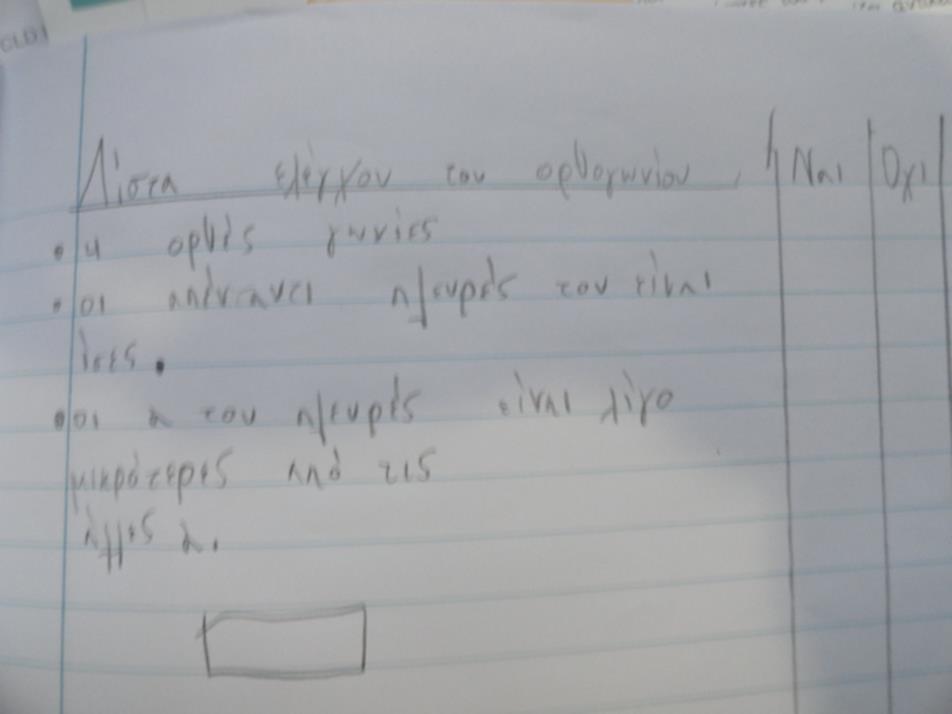 Λίστα ελέγχου του ορθογωνίου Ναι Όχι
• 4 ορθές γωνίες
• οι απέναντι πλευρές του είναι
ίσες.
• οι 2 του πλευρές είναι λίγο
μικρότερες από τις
άλλες 2.